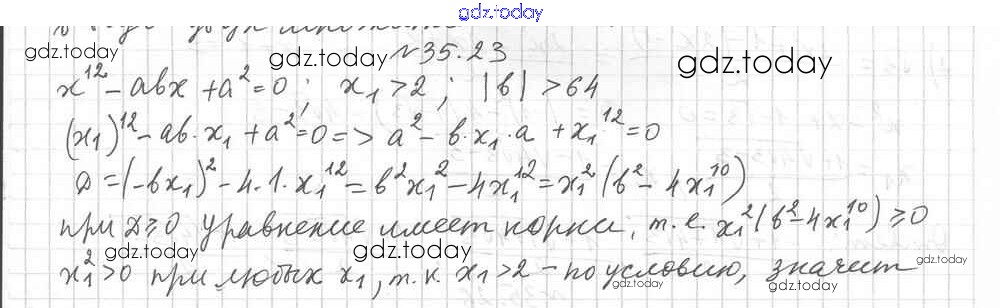 gdz.today
gdz.today №35.23 gdz.today
x¹² - abx + a² = 0; x₁ > 2; |b| > 64
(x₁)¹² - ab·x₁ + a² = 0 => a² - b·x₁·a + x₁¹² = 0
D = (-bx₁)² - 4·1·x₁¹² = b²x₁² - 4x₁¹² = x₁²(b² - 4x₁¹⁰)
при D ≥ 0 уравнение имеет корни, т.е. x₁²(b² - 4x₁¹⁰) ≥ 0
gdz.today gdz.today
x₁² > 0 при любых x₁, т.к. x₁ > 2 - по условию, значит
gdz.today